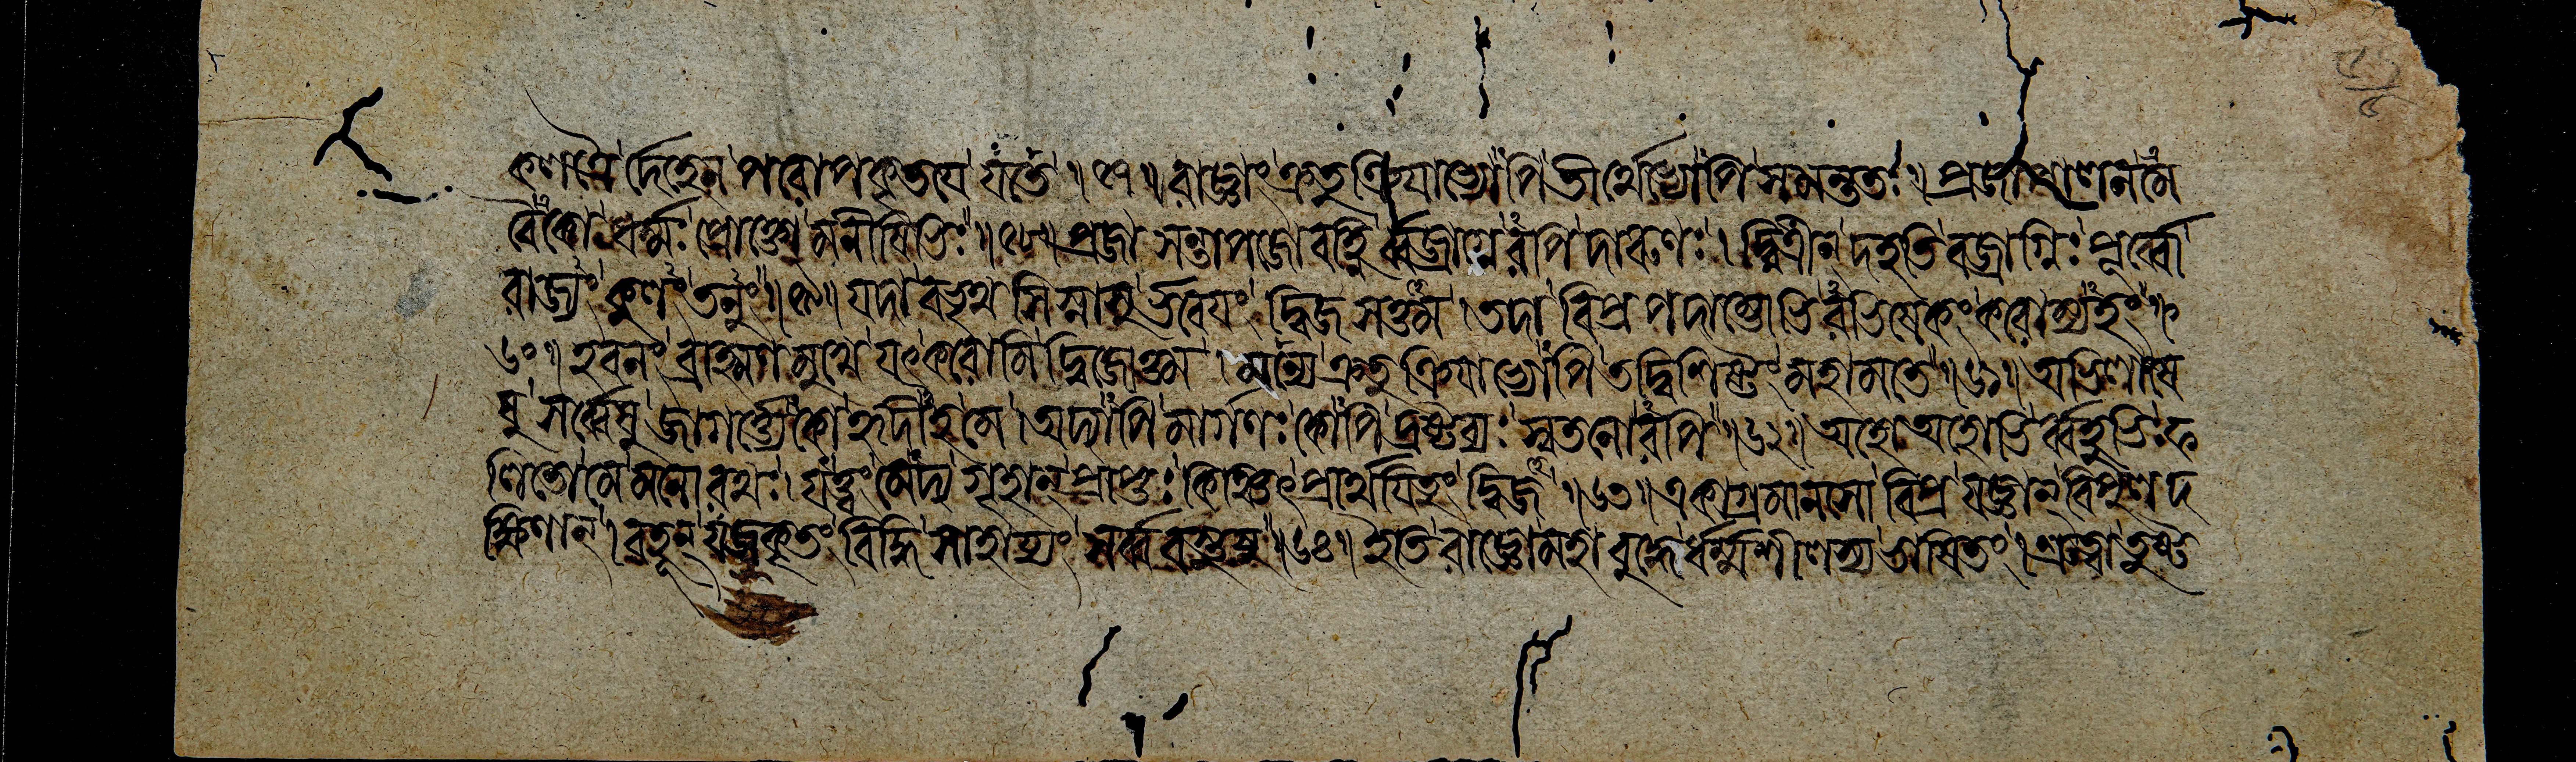 কলত্রৈর্দেহেন পরোপকৃতয়ে যতে ॥ ৫৭ ॥ রাজ্ঞাং ক্রতুক্রিয়াভ্যোপি তীর্থেভ্যোপি সমন্ততঃ । প্রজাপালনমে
বৈকো ধর্ম্মঃ প্রোক্তো মনীষিভিঃ ॥ ৫৮ ॥ প্রজাসন্তাপজো বহ্নির্ব্বজ্রাগ্নেরপি দারুণঃ । দ্বিত্রীন্ দহতি বজ্রাগ্নিঃ পূর্ব্বো
রাজ্যং কুলং তনুং ॥ ৫৯ ॥ যদাবভৃথসিস্নাসুর্ভবেয়ং দ্বিজসত্তম । তদা বিপ্রপদাম্ভোভিরভিষেকং করোম্যহং ॥
৬০ ॥ হবনং ব্রাহ্মণমুখে যৎ করোমি দ্বিজোত্তম । মন্যে ক্রতুক্রিয়াভ্যোপি তদ্বিশিষ্টং মহামতে ॥ ৬১ ॥ অভিলাষে
ষু সর্ব্বেষু জাগর্ত্ত্যেকো হৃদীহ মে । অদ্যাপি মার্গণঃ কোপি দ্রষ্টব্যঃ স্বতনোরপি ॥ ৬২ ॥ অহো অহোভির্ব্বহুভিঃ ফ
লিতো মে মনোরথঃ । যত্ত্বং মেদ্য গৃহান্ প্রাপ্তঃ কিঞ্চিৎ প্রার্থয়িতুং দ্বিজ ॥ ৬৩ ॥ একাগ্রমানসো বিপ্র যজ্ঞান্ বিপুলদ
ক্ষিণান্ । বহূন্ যজ কৃতং বিদ্ধি সাহায্যং সর্ব্ববস্তুষু ॥ ৬৪ ॥ ইতি রাজ্ঞো মহাবুদ্ধের্ধর্ম্মশীলস্য ভাষিতং । শ্রুত্বা তুষ্ট